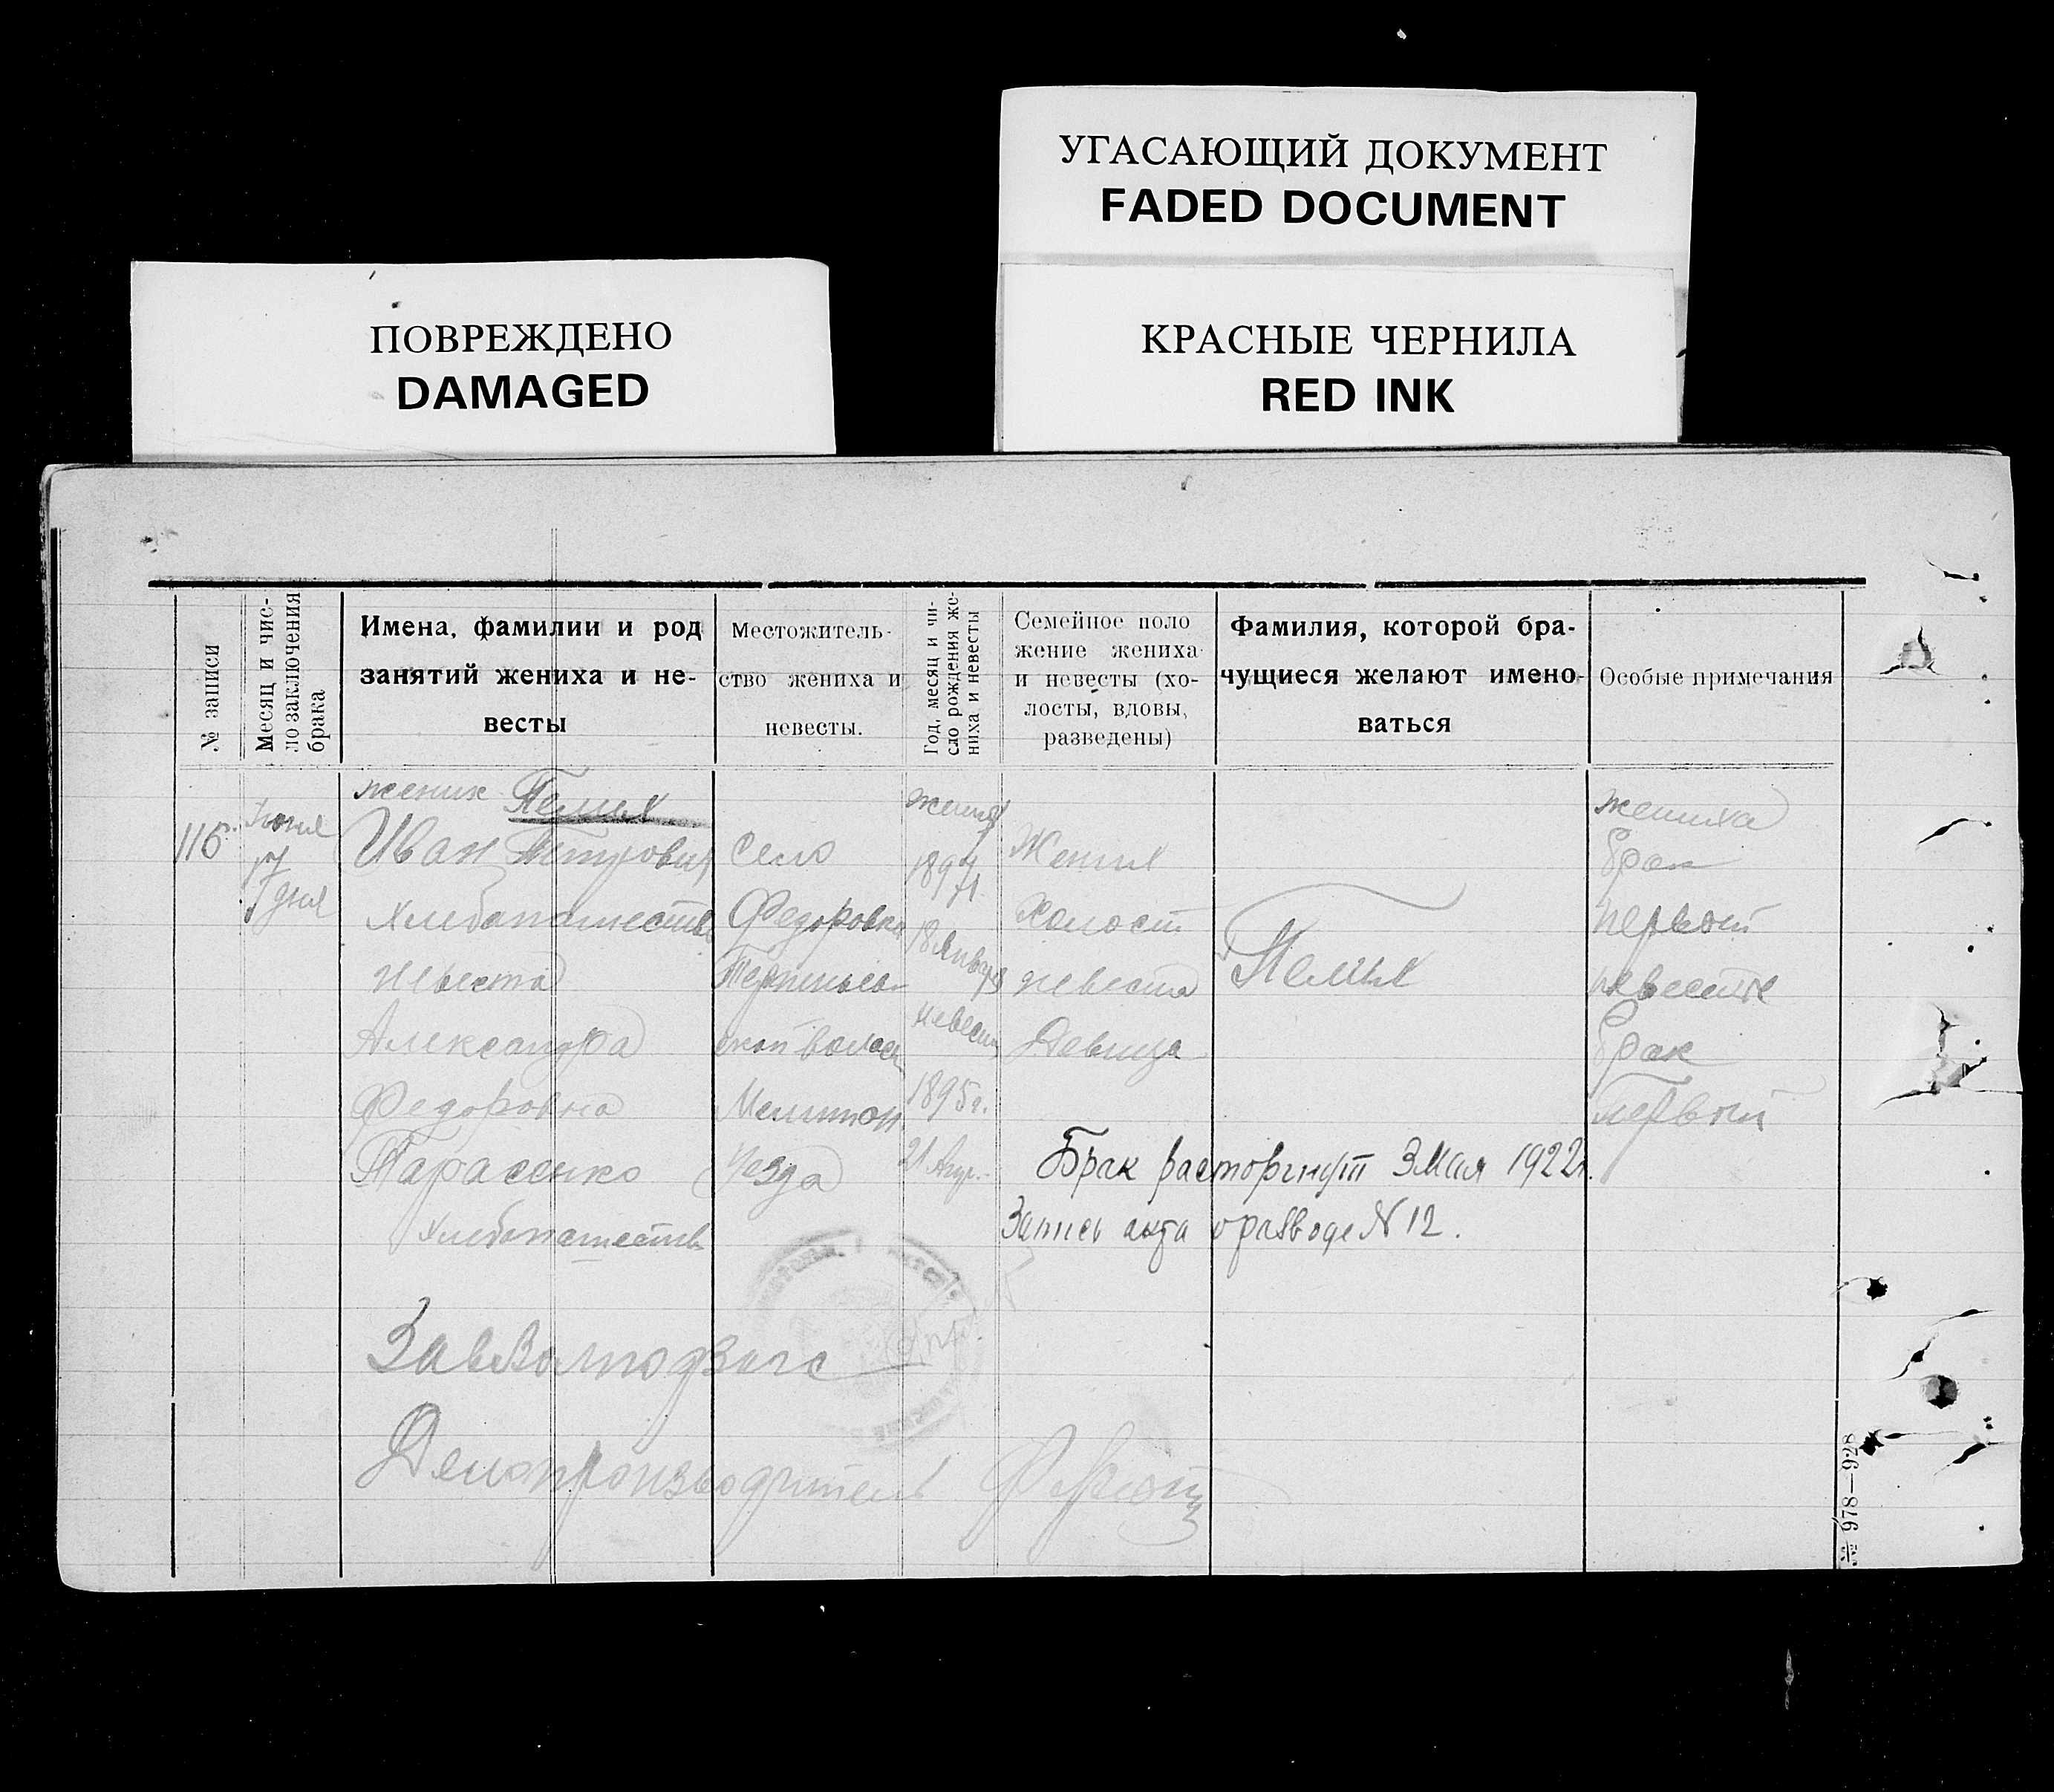 УГАСАЮЩИЙ ДОКУМЕНТ
FADED DOCUMENT
ПОВРЕЖДЕНО
DAMAGED
КРАСНЫЕ ЧЕРНИЛА
RED INK
№ записи
Месяц и чис-
ло заключения
брака
Имена, фамилии и род
занятий жениха и не-
весты
Местожитель-
ство жениха и
невесты.
Год, месяц и чи-
сло рождения же-
ниха и невесты
Семейное поло
жение жениха
и невесты (хо-
лосты, вдовы,
разведены)
Фамилия, которой бра-
чущиеся желают имено-
ваться
Особые примечания
116
17
дня
жених
Иван Петрович
Хлебопашество
Невеста
Александра
Федоровна
Тарасенко
Хлебопашеств
село
Федоровка
волост
Мелитоп
уезда
жених
1897г.
18 Января
невест
1895г.
21 Апр.
Жених
Холост
невеста
Девица
жениха
брак
первый
невесте
брак
первый
Брак расторгнут 3 Мая 1922г.
Запись акта о разводе N 12.
Делопроизводитель
№ 978—928